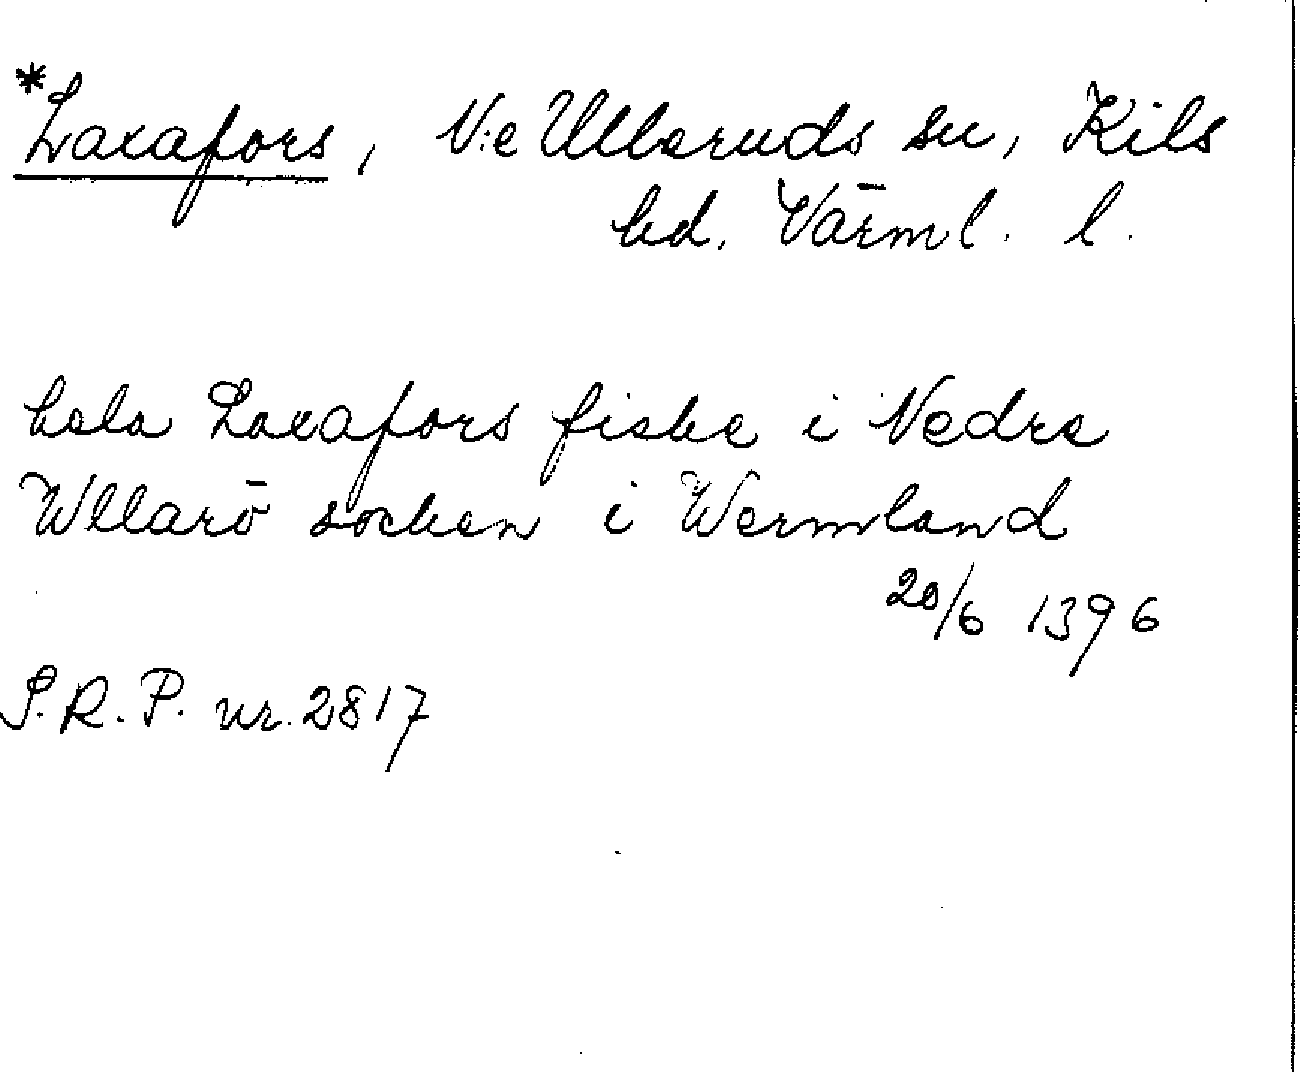 *Laxafors, N:e Ulleruds sn, Kils
hd. Värml. l.
hela Laxafors fiske i Nedre
Wllarö socken i Wermland
20/6 1396
S.R.P. nr. 2817